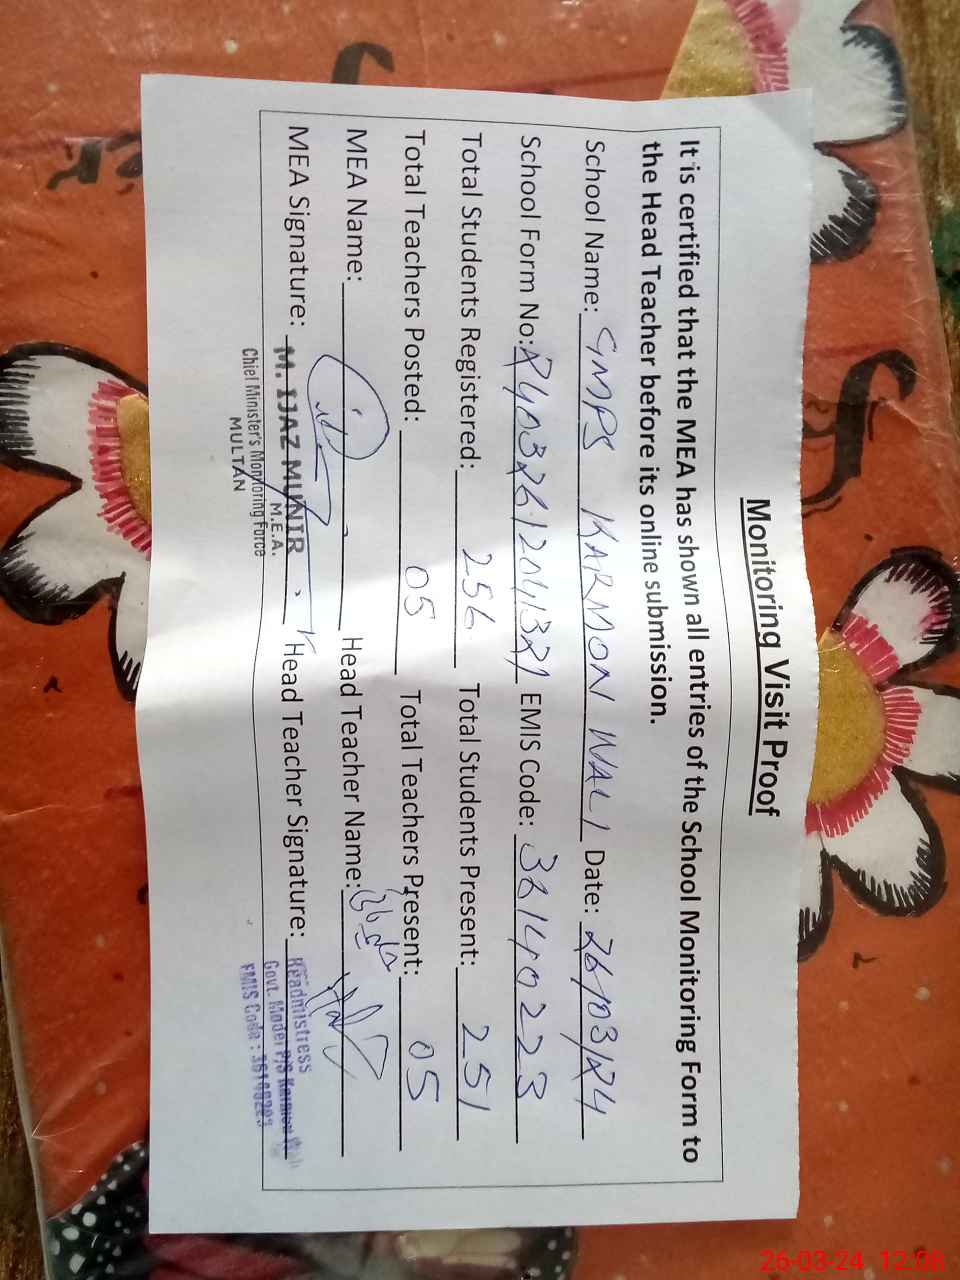 Monitoring Visit Proof
It is certified that the MEA has shown all entries of the School Monitoring Form to
the Head Teacher before its online submission.
School Name: GMPS KARMON WALI Date: 26/03/24
School Form No: EMIS Code:
Total Students Registered: 256 Total Students Present: 251
Total Teachers Posted: 05 Total Teachers Present: 05
MEA Name: Head Teacher Name:
MEA Signature: Head Teacher Signature:
M. IJAZ MUNIR
M.E.A.
Chief Minister's Monitoring Force
MULTAN
Headmistress
Govt. Model P/S
EMIS Code :
26-03-24 12:08